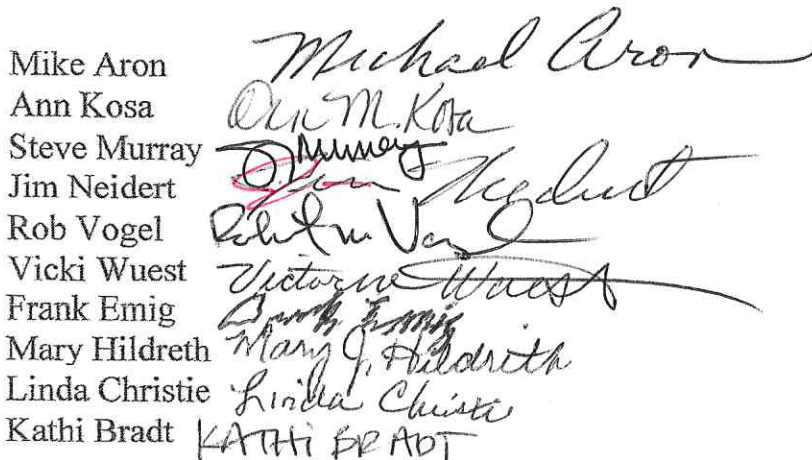 Mike Aron Michael Aron
Ann Kosa Ann M. Kosa
Steve Murray S. Murray
Jim Neidert Jim Neidert
Rob Vogel Robert M Vogel
Vicki Wuest Victoria Wuest
Frank Emig Frank Emig
Mary Hildreth Mary J. Hildreth
Linda Christie Linda Christie
Kathi Bradt KATHi BRADT